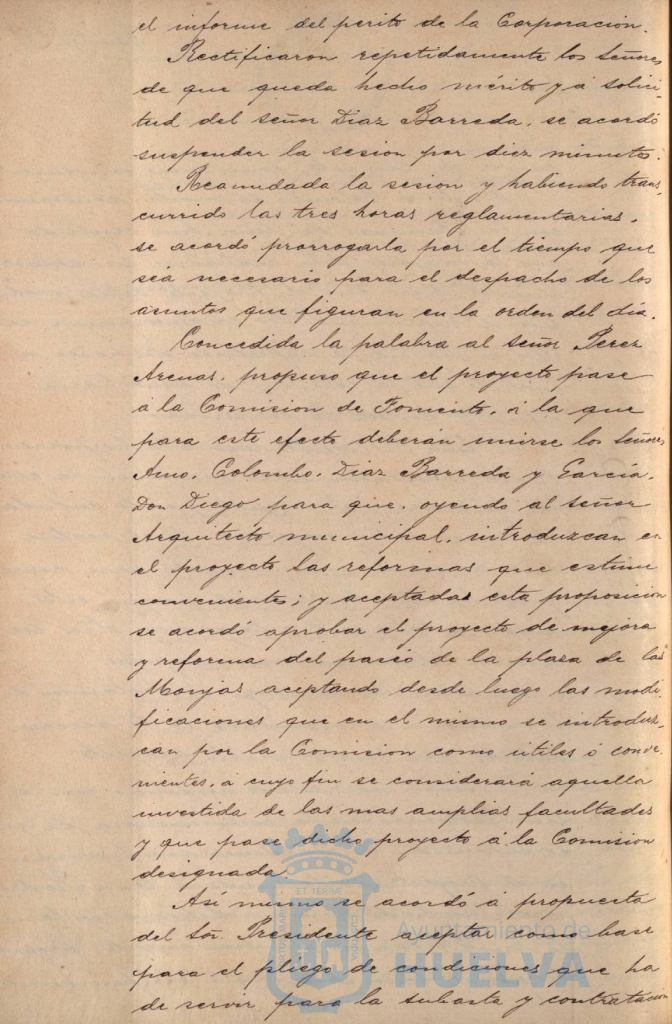 el informe del perito de la Corporación.
Rectificaron repetidamente los señores
de que queda hecho mérito y á solici-
tud del señor Diaz Barreda, se acordó
suspender la sesion por diez minutos.
Reanudada la sesion y habiendo trans-
currido las tres horas reglamentarias,
se acordó prorrogarla por el tiempo que
sea necesario para el despacho de los
asuntos que figuran en la orden del día.
Concedida la palabra al señor Perez
Arenas, propuso que el proyecto pase
á la Comision de Fomento, á la que
para este efecto deberán unirse los señores
Amo, Colombo, Diaz Barreda y García,
Don Diego para que, oyendo al señor
Arquitecto municipal, introduzcan en
el proyecto las reformas que estime
convenientes; y aceptada esta proposicion
se acordó aprobar el proyecto de mejora
y reforma del paseo de la plaza de las
Monjas aceptando desde luego las modi-
ficaciones que en el mismo se introduz-
can por la Comision como útiles ó conve-
nientes, á cuyo fin se considerará aquella
investida de las mas amplias facultades
y que pase dicho proyecto á la Comision
designada.
Así mismo se acordó á propuesta
del Sor. Presidente aceptar como base
para el pliego de condiciones que ha
de servir para la subasta y contratacion
Ayuntamiento de
HUELVA